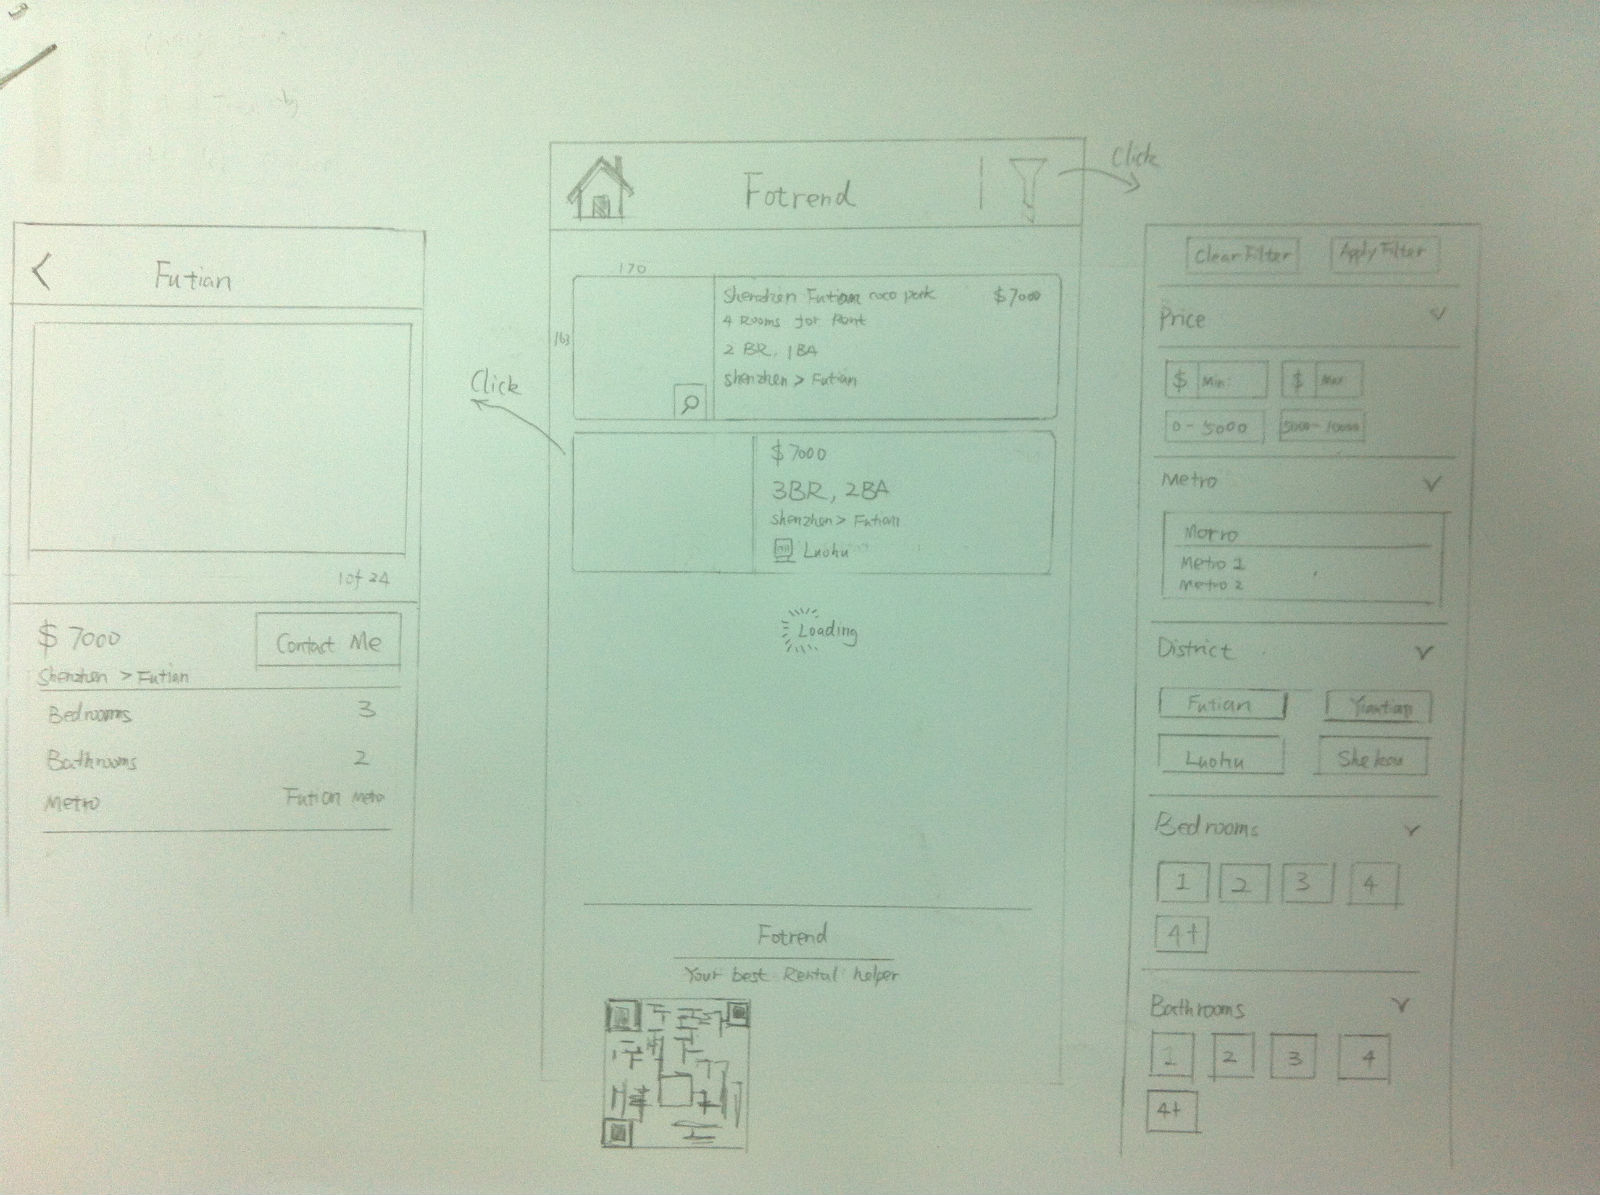 Futian
1 of 24
$ 7000
Contact Me
Shenzhen > Futian
Bedrooms 3
Bathrooms 2
Metro Futian Metro
Click
Fotrend
Click
170
163
Shenzhen Futian coco park $7000
4 Rooms for Rent
2 BR, 1BA
Shenzhen > Futian
$7000
3BR, 2BA
Shenzhen > Futian
Luohu
Loading
Fotrend
Your best Rental helper
Clear Filter Apply Filter
Price
$ Min $ Max
0 - 5000 5000 - 10000
Metro
Metro 1
Metro 2
District
Futian
Luohu Shekou
Bedrooms
1 2 3 4
4+
Bathrooms
1 2 3 4
4+